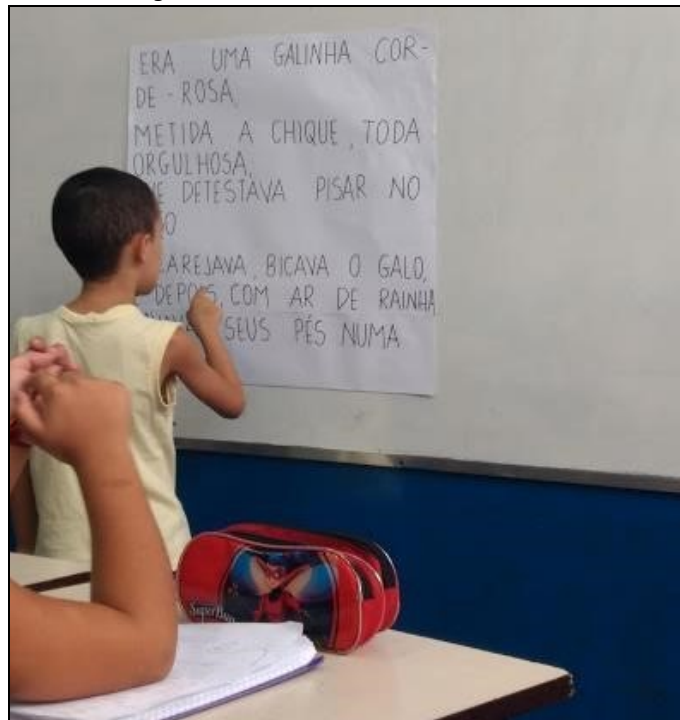 ERA UMA GALINHA COR-
DE-ROSA,
METIDA A CHIQUE, TODA
ORGULHOSA,
DETESTAVA PISAR NO
BICAVA O GALO,
DEPOIS, COM AR DE RAINHA
SEUS PÉS NUMA